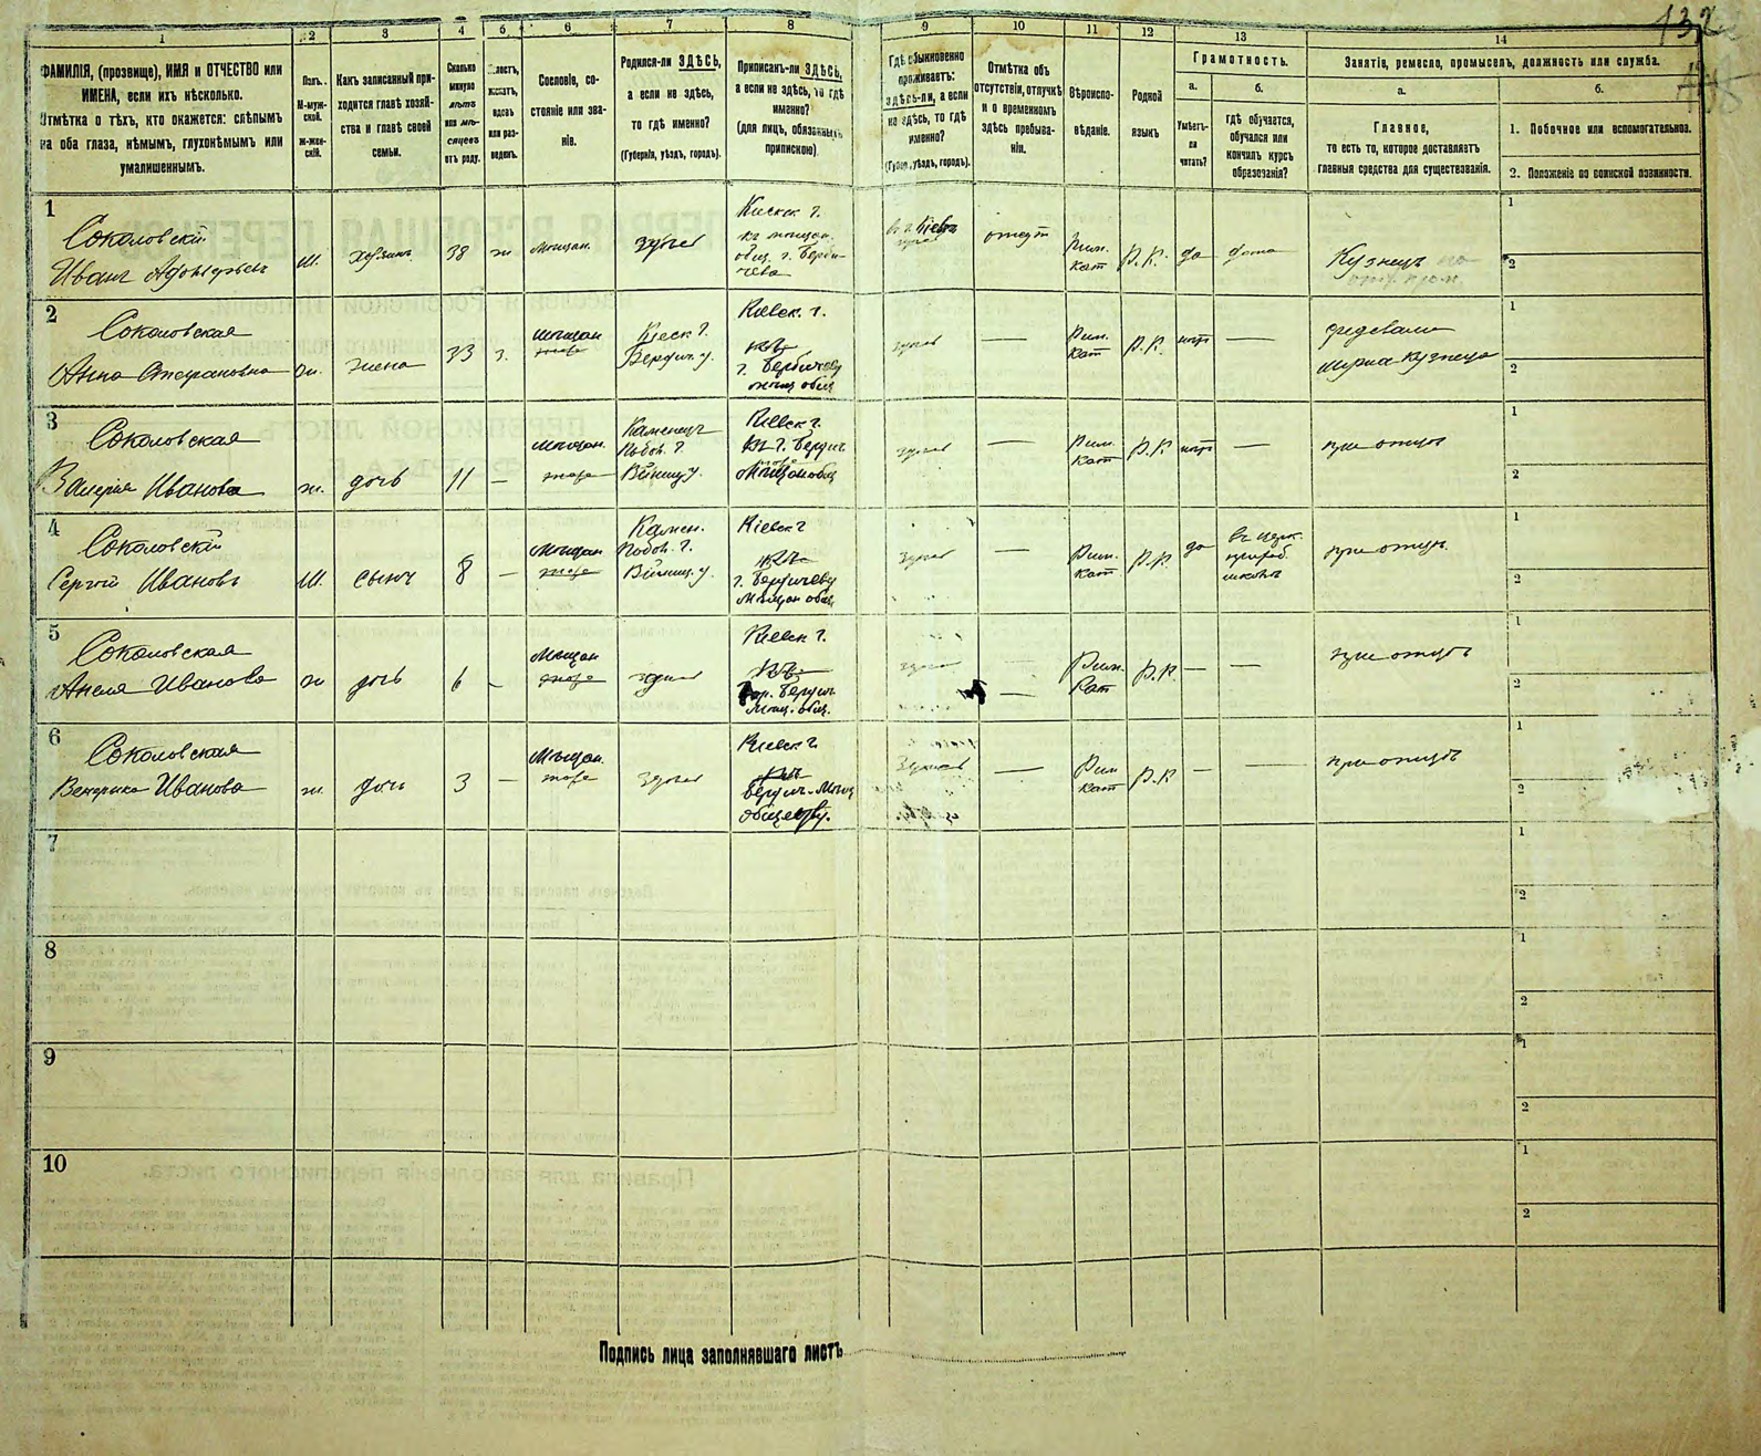 132
1
2
3
4
5
6
7
8
9
10
11
12
13
14
ФАМИЛІЯ, (прозвище), ИМЯ и ОТЧЕСТВО или
ИМЕНА, если ихъ нѣсколько.
Отмѣтка о тѣхъ, кто окажется: слѣпымъ
на оба глаза, нѣмымъ, глухонѣмымъ или
умалишеннымъ.
Полъ.
М-муж-
ской.
ж-жен-
скій.
Какъ записанный при-
ходится главѣ хозяй-
ства и главѣ своей
семьи.
Сколько
минуло
лѣтъ
или мѣ-
сяцевъ
отъ роду.
Холостъ,
женатъ,
вдовъ
или раз-
веденъ.
Сословіе, со-
стояніе или зва-
ніе.
Родился-ли ЗДѢСЬ,
а если не здѣсь,
то гдѣ именно?
(Губернія, уѣздъ, городъ).
Приписанъ-ли ЗДѢСЬ,
а если не здѣсь, то гдѣ
именно?
(для лицъ, обязанныхъ
припискою)
Гдѣ обыкновенно
проживаетъ:
здѣсь-ли, а если
не здѣсь, то гдѣ
именно?
(Губерн., уѣздъ, городъ).
Отмѣтка объ
отсутствіи, отлучкѣ
и о временномъ
здѣсь пребыва-
ніи.
Вѣроиспо-
вѣданіе.
Родной
языкъ
Грамотность.
а.
Умѣетъ-
ли
читать?
б.
гдѣ обучается,
обучался или
кончилъ курсъ
образованія?
Занятіе, ремесло, промыселъ, должность или служба.
а.
Главное,
то есть то, которое доставляетъ
главныя средства для существованія.
б.
1. Побочное или вспомогательное.
2. Положеніе по воинской повинности.
1
Соколовскій
Иванъ
м.
хозяинъ
38
ж
мѣщан.
здѣсь
Киевск. г.
въ мѣщан.
общ. г. Берди-
чева
въ г. Кіевѣ
Рим.
кат
да
дома
Кузнецъ
1
2
2
Соколовская
Анна Стефановна
ж.
жена
33
з.
мѣщан
тоже
Киевск. г.
Бердич. у.
Киевск. г.
г. Бердичеву
мѣщ общ
здѣсь
—
Рим.
Кат
нѣтъ
—
средствами
мужа кузнеца
1
2
3
Соколовская
Валерія Иванова
ж.
дочь
11
—
мѣщан.
тоже
Каменецъ
Подол. г.
Винниц у.
Киевск г.
здѣсь
—
Рим.
Кат
нѣтъ
—
при отцѣ
1
2
4
Соколовскій
Сергѣй Ивановъ
м.
сынъ
8
—
Мѣщан
тоже
Камен.
Подол. г.
Винниц. у.
Кіевск г
г. Бердичеву
Мѣщан общ
здѣсь
—
Рим.
Кат
да
въ церк.
приход.
школѣ
при отцѣ.
1
2
5
Соколовская
Анеля Иванова
ж
дочь
6
-
Мѣщан
тоже
здѣсь
Киевск г.
гор. Бердич.
Мѣщ. общ.
здѣсь
—
Рим.
Кат
—
—
при отцѣ
1
2
6
Соколовская
Иванова
ж.
дочь
3
—
Мѣщан.
тоже
здѣсь
Киевск г.
Бердич. Мѣщ
обществу.
Здѣсь
—
Рим
кат
—
—
при отцѣ
1
2
7
1
2
8
1
2
9
1
2
10
1
2
Подпись лица заполнявшаго листъ